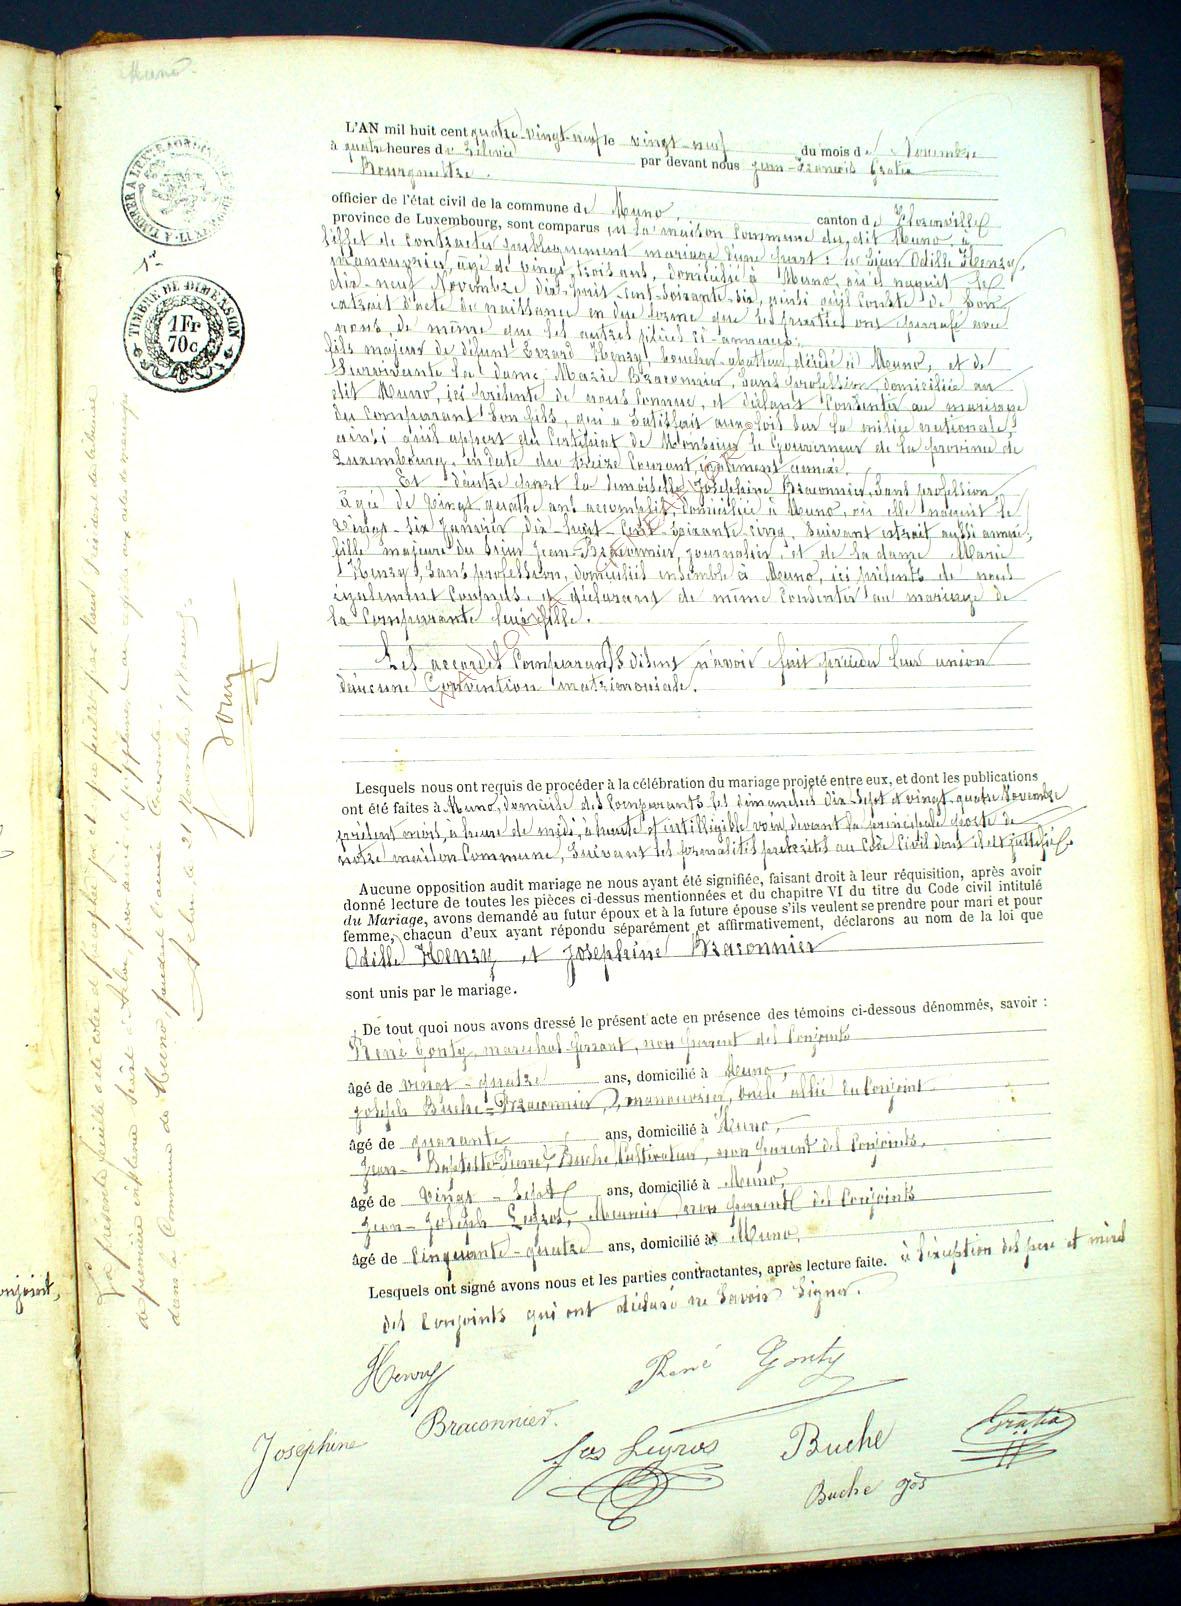 Muno.
TIMBRE DE DIMENSION
1 Fr
70c
L'AN mil huit cent quatre-vingt-neuf le vingt-neuf du mois de Novembre
à quatre heures de relevée par devant nous Jean-François Gratia
Bourgmestre.
officier de l'état civil de la commune de Muno, canton de Florenville
province de Luxembourg, sont comparus en la maison Commune du dit Muno, à
l'effet de Contracter publiquement mariage d'une part : le Sieur Odille Henry,
manouvrier, âgé de vingt-trois ans, domicilié à Muno, où il naquit le
dix-neuf Novembre dix-huit-cent-soixante-six, ainsi qu'il conste de son
extrait d'acte de naissance en due forme que les parties ont parafé avec
nous, de même que les autres pièces ci-annexées;
fils majeur de défunt Evrard Henry, décédé à Muno, et de
survivante la dame Marie Braconnier, sans profession, domiciliée au
dit Muno, ici présente de nous connue, et déclarant consentir au mariage
du Comparant son fils, qui a satisfait aux lois sur la milice nationale,
ainsi qu'il appert du Certificat de Monsieur le Gouverneur de la province de
Luxembourg, en date du treize Courant, également annexé.
Et d'autre part la demoiselle Joséphine Braconnier, sans profession
âgée de vingt quatre ans accomplis, domiciliée à Muno, où elle naquit le
vingt-six Janvier dix-huit-cent-soixante-cinq, suivant extrait aussi annexé;
fille majeure du Sieur Jean-Braconnier, journalier, et de la dame Marie
Henry, sans profession, domiciliés ensemble à Muno, ici présents de nous
également Connus, et déclarant de même consentir au mariage de
la Comparante leur fille.
Les accordés Comparants disent n'avoir fait précéder leur union
d'aucune Convention matrimoniale.
Lesquels nous ont requis de procéder à la célébration du mariage projeté entre eux, et dont les publications
ont été faites à Muno, domicile des Comparants les dimanches dix-sept et vingt-quatre Novembre
présent mois, à heure de midi, à haute et intelligible voix, devant la principale porte de
notre maison Commune, suivant les formalités prescrites au Code Civil dont il est justifié.
Aucune opposition audit mariage ne nous ayant été signifiée, faisant droit à leur réquisition, après avoir
donné lecture de toutes les pièces ci-dessus mentionnées et du chapitre VI du titre du Code civil intitulé
du Mariage, avons demandé au futur époux et à la future épouse s'ils veulent se prendre pour mari et pour
femme, chacun d'eux ayant répondu séparément et affirmativement, déclarons au nom de la loi que
Odille Henry et Joséphine Braconnier
sont unis par le mariage.
De tout quoi nous avons dressé le présent acte en présence des témoins ci-dessous dénommés, savoir :
René Gonty, maréchal-ferrant, non parent des Conjoints
âgé de vingt-quatre ans, domicilié à Muno,
Joseph Buche-Braconnier, manouvrier, oncle allié du Conjoint
âgé de quarante ans, domicilié à Muno,
Jean-Baptiste-Pierre, Buche, Cultivateur, non parent des Conjoints,
âgé de vingt-sept ans, domicilié à Muno,
Jean-Joseph Legros, Meunier, non parent des Conjoints
âgé de Cinquante-quatre ans, domicilié à Muno,
Lesquels ont signé avons nous et les parties contractantes, après lecture faite. à l'exception des père et mères
des Conjoints qui ont déclaré ne savoir signer.
Henry
René Gonty
Joséphine Braconnier.
Jos Legros
Buche
Gratia
Buche Jos
La présente feuille a été cotée et paraphée par nous président du tribunal
de première instance séant à Arlon, pour servir de supplément au registre aux actes de mariage
dans la Commune de Muno, pendant l'année courante.
Arlon, le 21 Novembre 1889